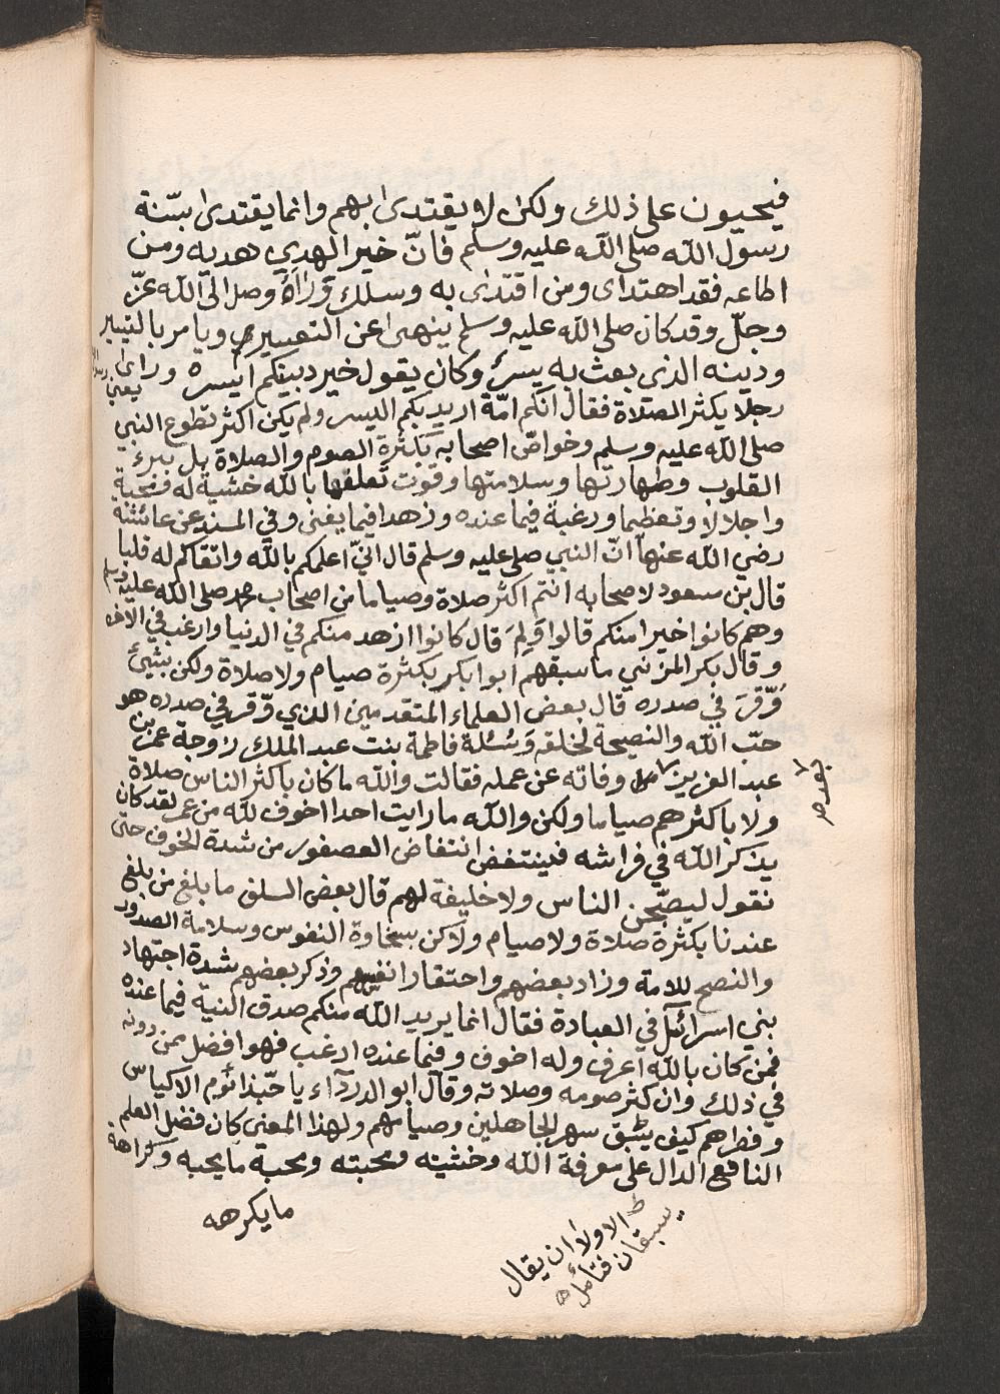 فيحيون على ذلك ولكن لا يقتدى بهم وانما يقتدى بسّنة
رسول الله صلى الله عليه وسلم فانّ خير الهدي هديه ومن
اطاعه فقد اهتدى ومن اقتدى به وسلك ورآءه وصل الى الله عزّ
وجلّ وقد كان صلى الله عليه وسلم ينهى عن التعسير ويامر بالتيسير
ودينه الذى بعث به يسرٌ وكان يقول خير دينكم ايسره وراى
يعني
رجلا يكثر الصّلاة فقال انكم امّة اريد بكم اليسر ولم يكن اكثر تطوع النبي
صلى الله عليه وسلم وخواصّ اصحابه بكثرة الصوم والصلاة بل ببرء
القلوب وطهارتها وسلامتها وقوت تعلقها بالله خشية له ومحبة
واجلالا وتعظيما ورغبة فيما عنده وزهدا فيما يفنى وفي المسند عن عائشة
رضي الله عنها انّ النبي صلى عليه وسلم قال انّي اعلمكم بالله واتقاكم له قلبا
قال بن سعود لاصحابه انتم اكثر صلاة وصياما من اصحاب محمد صلى الله عليه وسلم
وهم كانوا خيرا منكم قالوا وَلِمَ قال كانوا ازهد منكم في الدنيا وارغب في الاخره
وقال بكر المزني ما سبقهم ابوا بكر بكثرة صيام ولا صلاة ولكن بشيئ
وُقِّرَ في صدره قال بعض العلماء المتقدمين الذي وّقر في صدره هو
حبّ الله والنصيحة لخلقه وَسُئلة فاطمة بنت عبد الملك زوجة عمر بن
عبد العزيز وفاته عن عمله فقالت والله ما كان باكثر الناس صلاة
بعد صر
ولا باكثرهم صياما ولكن والله ما رايت احدا اخوف لله من عمر لقد كان
يذكر الله في فراشه فينتفض انتفاض العصفور من شدة الخوف حتى
نقول ليصبّحن الناس ولا خليفة لهم قال بعض السلف ما بلغ من بلغ
عندنا بكثرة صلاة ولا صيام ولاكن بسخاوة النفوس وسلامة الصدور
والنصح للامة وزاد بعضهم واحتقار انفسهم وذكر بعضهم شدة اجتهاد
بني اسرائيل في العبادة فقال انما يريد الله منكم صدق النية فيما عنده
فمن كان بالله اعرف وله اخوف وفيما عنده ارغب فهوا فضل ممن دونه
في ذلك وان كثر صومه وصلاته وقال ابو الدردآء يا حبّذا نوم الاكياس
وفطرهم كيف يسْبق سهر الجاهلين وصيامهم ولهذا المعنى كان فضل العلم
النافع الدال على معرفة الله وخشيته ومحبته ومحبة ما يحبه وكراهة
ما يكرهه
الاولا ان يقال
يسبقان فتأمل